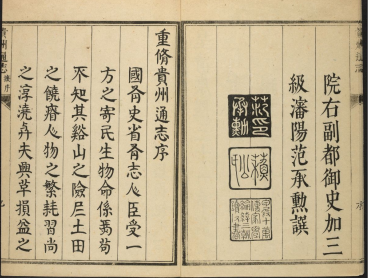 院右副都御史加三
級瀋陽范承勳譔
范印
承勳
重脩貴州通志序
國有史省有志人臣受一
方之寄民生物命係焉苟
不知其谿山之險巨土田
之饒瘠人物之繁耗習尚
之淳澆卉夫興革損益之
貴州通志
序